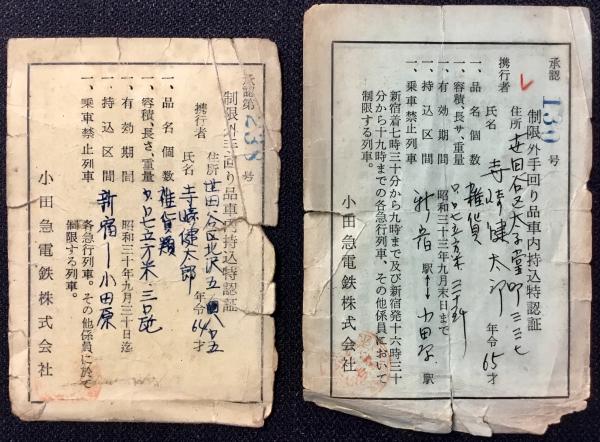 承認 130 号
制限外手回り品車内持込特認証
携行者
住所 世田谷区太子堂町三三七
氏名 寺崎健太郎 年令 65 才
一、品名個数 雑貨
一、容積、長サ、重量 〇.〇七五立方米 三十瓩
一、有効期間 昭和三十三年九月末日まで
一、持込区間 新宿 駅 ↔ 小田原 駅
一、乗車禁止列車
新宿着七時三十分から九時まで及び新宿発十六時三十
分から十九時までの各急行列車、その他係員において
制限する列車。
小田急電鉄株式会社
承認第 238 号
制限外手回り品車内持込特認証
携行者
住所 世田谷区北沢五ノ八〇五
氏名 寺崎健太郎 年令 64 才
一、品名個数 雑貨類
一、容積、長さ、重量 〇.〇七五立方米、三〇瓩
一、有効期間 昭和三十年九月三十日迄
一、持込区間 新宿ー小田原
一、乗車禁止列車 各急行列車。その他係員に於て
制限する列車。
小田急電鉄株式会社